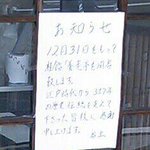 お知らせ
12月31日をもって
を閉店
致します。
江戸時代から
の歴史と伝統を支えて
下さった皆様に感謝
申し上げます。
店主